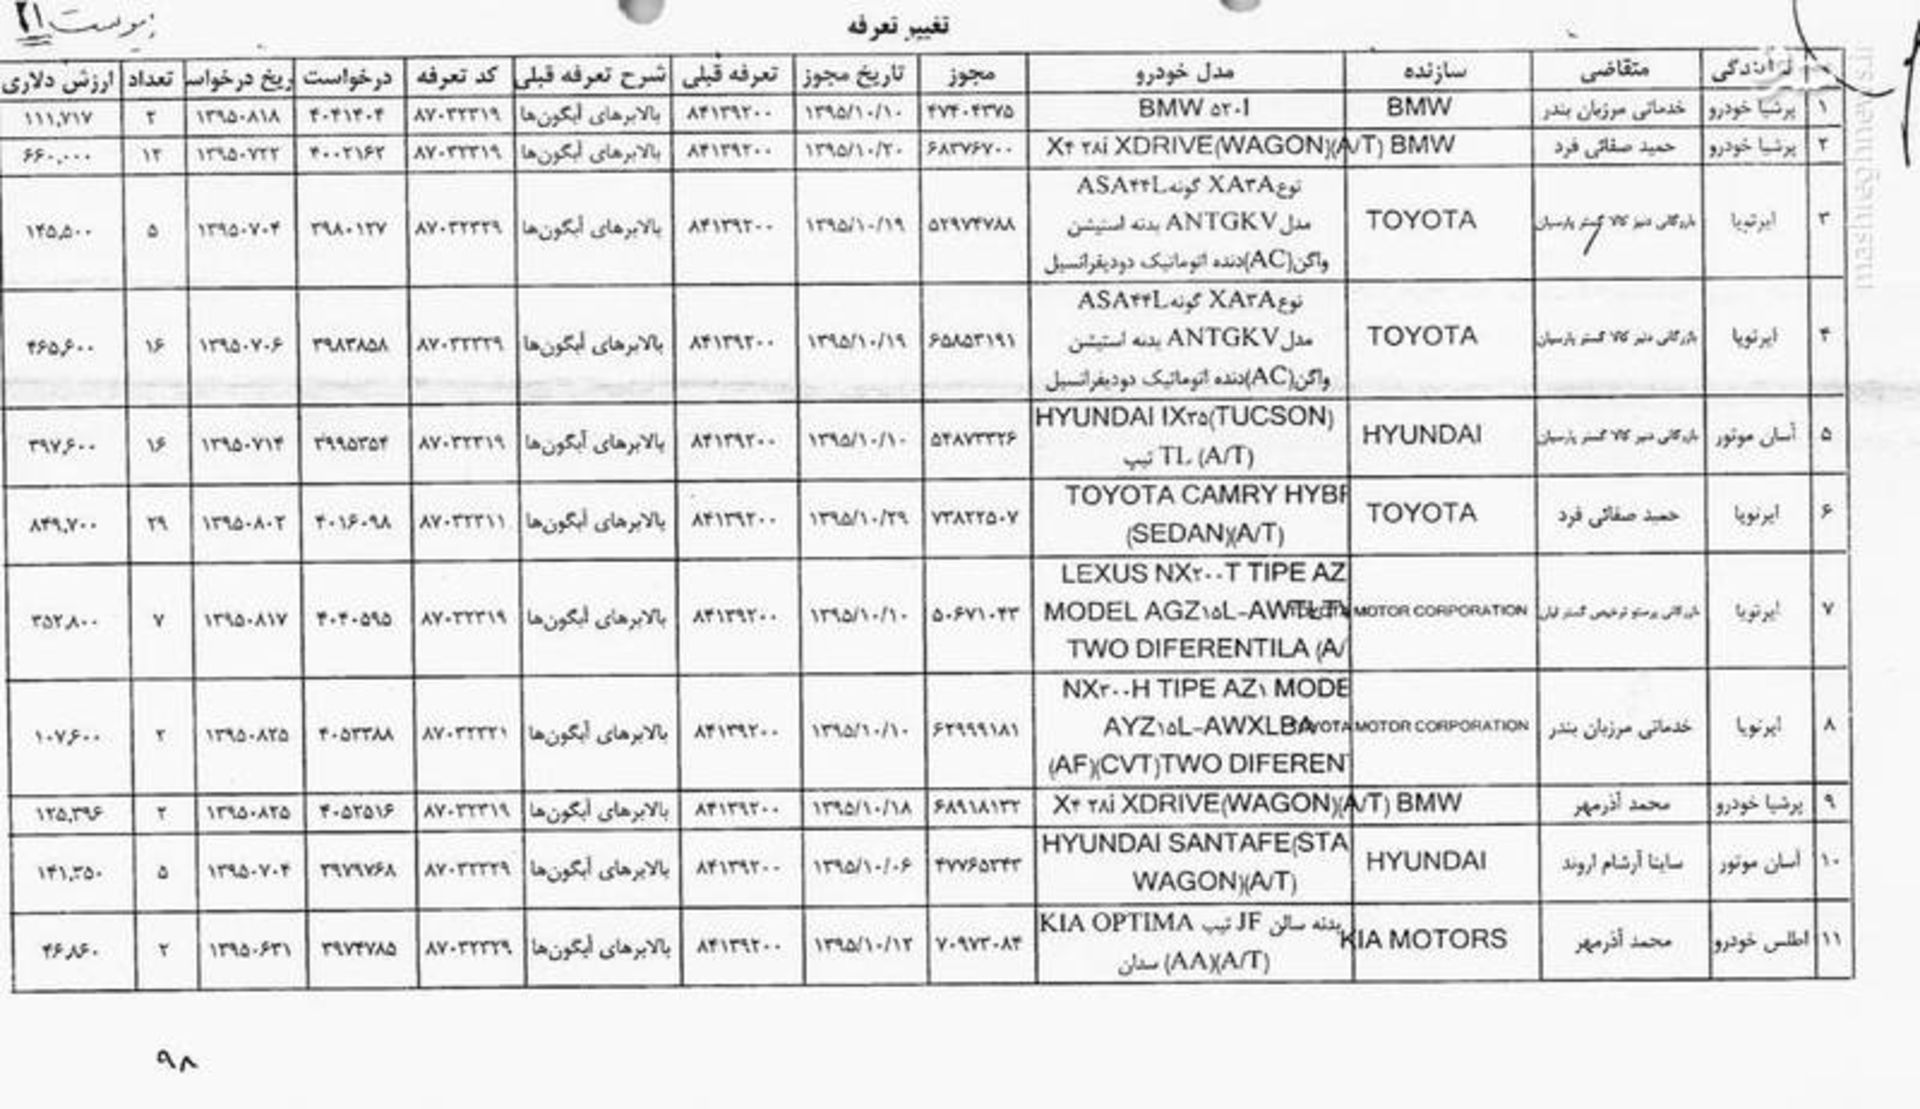 پیوست ۲۱
تغییر تعرفه
نمایندگی	متقاضی	سازنده	مدل خودرو	مجوز	تاریخ مجوز	تعرفه قبلی	شرح تعرفه قبلی	کد تعرفه	درخواست	ریخ درخواس	تعداد	ارزش دلاری
۱	پرشیا خودرو	خدماتی مرزبان بندر	BMW	BMW ۵۲۰I	۴۷۴۰۴۳۷۵	۱۳۹۵/۱۰/۱۰	۸۴۱۳۹۲۰۰	بالابرهای آبگون‌ها	۸۷۰۳۲۳۱۹	۴۰۴۱۴۰۴	۱۳۹۵۰۸۱۸	۲	۱۱۱,۷۱۷
۲	پرشیا خودرو	حمید صفائی فرد	X۴ ۲۸i XDRIVE(WAGON)(A/T) BMW	۶۸۳۷۶۷۰۰	۱۳۹۵/۱۰/۲۰	۸۴۱۳۹۲۰۰	بالابرهای آبگون‌ها	۸۷۰۳۲۳۱۹	۴۰۰۲۱۶۲	۱۳۹۵۰۷۲۲	۱۲	۶۶۰,۰۰۰
نوعXA۳A گونهASA۴۴L
۳	ایرتویا	بازرگانی دنیز کالا گستر پارسیان	TOYOTA	مدلANTGKV بدنه استیشن	۵۲۹۷۴۷۸۸	۱۳۹۵/۱۰/۱۹	۸۴۱۳۹۲۰۰	بالابرهای آبگون‌ها	۸۷۰۳۲۳۲۹	۳۹۸۰۱۲۷	۱۳۹۵۰۷۰۴	۵	۱۴۵,۵۰۰
واگن(AC)دنده اتوماتیک دودیفرانسیل
نوعXA۳A گونهASA۴۴L
۴	ایرتویا	بازرگانی دنیز کالا گستر پارسیان	TOYOTA	مدلANTGKV بدنه استیشن	۶۵۸۵۳۱۹۱	۱۳۹۵/۱۰/۱۹	۸۴۱۳۹۲۰۰	بالابرهای آبگون‌ها	۸۷۰۳۲۳۲۹	۳۹۸۳۸۵۸	۱۳۹۵۰۷۰۶	۱۶	۴۶۵,۶۰۰
واگن(AC)دنده اتوماتیک دودیفرانسیل
HYUNDAI IX۳۵(TUCSON)
۵	آسان موتور	بازرگانی دنیز کالا گستر پارسیان	HYUNDAI	تیپ TL (A/T)	۵۴۸۷۳۳۲۶	۱۳۹۵/۱۰/۱۰	۸۴۱۳۹۲۰۰	بالابرهای آبگون‌ها	۸۷۰۳۲۳۱۹	۳۹۹۵۳۵۴	۱۳۹۵۰۷۱۴	۱۶	۳۹۷,۶۰۰
TOYOTA CAMRY HYBR
۶	ایرتویا	حمید صفائی فرد	TOYOTA	(SEDAN)(A/T)	۷۳۸۲۲۵۰۷	۱۳۹۵/۱۰/۲۹	۸۴۱۳۹۲۰۰	بالابرهای آبگون‌ها	۸۷۰۳۲۳۱۱	۴۰۱۶۰۹۸	۱۳۹۵۰۸۰۲	۲۹	۸۴۹,۷۰۰
LEXUS NX۲۰۰T TIPE AZ
۷	ایرتویا	MOTOR CORPORATION	MODEL AGZ۱۵L-AWTLT	۵۰۶۷۱۰۴۳	۱۳۹۵/۱۰/۱۰	۸۴۱۳۹۲۰۰	بالابرهای آبگون‌ها	۸۷۰۳۲۳۱۹	۴۰۴۰۵۹۵	۱۳۹۵۰۸۱۷	۷	۳۵۲,۸۰۰
TWO DIFERENTILA (A/
NX۳۰۰H TIPE AZ۱ MODE
۸	ایرتویا	خدماتی مرزبان بندر	TOYOTA MOTOR CORPORATION	AYZ۱۵L-AWXLBA	۶۲۹۹۹۱۸۱	۱۳۹۵/۱۰/۱۰	۸۴۱۳۹۲۰۰	بالابرهای آبگون‌ها	۸۷۰۳۲۲۲۱	۴۰۵۳۳۸۸	۱۳۹۵۰۸۲۵	۲	۱۰۷,۶۰۰
(AF)(CVT)TWO DIFEREN
۹	پرشیا خودرو	محمد آذرمهر	X۴ ۲۸i XDRIVE(WAGON)(A/T) BMW	۶۸۹۱۸۱۳۲	۱۳۹۵/۱۰/۱۸	۸۴۱۳۹۲۰۰	بالابرهای آبگون‌ها	۸۷۰۳۲۳۱۹	۴۰۵۲۵۱۶	۱۳۹۵۰۸۲۵	۲	۱۲۵,۳۹۶
HYUNDAI SANTAFE(STA
۱۰	آسان موتور	ساینا آرشام اروند	HYUNDAI	WAGON)(A/T)	۴۷۷۶۵۳۴۳	۱۳۹۵/۱۰/۰۶	۸۴۱۳۹۲۰۰	بالابرهای آبگون‌ها	۸۷۰۳۲۳۲۹	۳۹۷۹۷۶۸	۱۳۹۵۰۷۰۴	۵	۱۴۱,۳۵۰
بدنه سالن JF تیپ KIA OPTIMA
۱۱	اطلس خودرو	محمد آذرمهر	KIA MOTORS	سدان (AA)(A/T)	۷۰۹۷۳۰۸۴	۱۳۹۵/۱۰/۱۲	۸۴۱۳۹۲۰۰	بالابرهای آبگون‌ها	۸۷۰۳۲۳۲۹	۳۹۷۴۷۸۵	۱۳۹۵۰۶۳۱	۲	۴۶,۸۶۰
۹۸
mashreghnews.ir